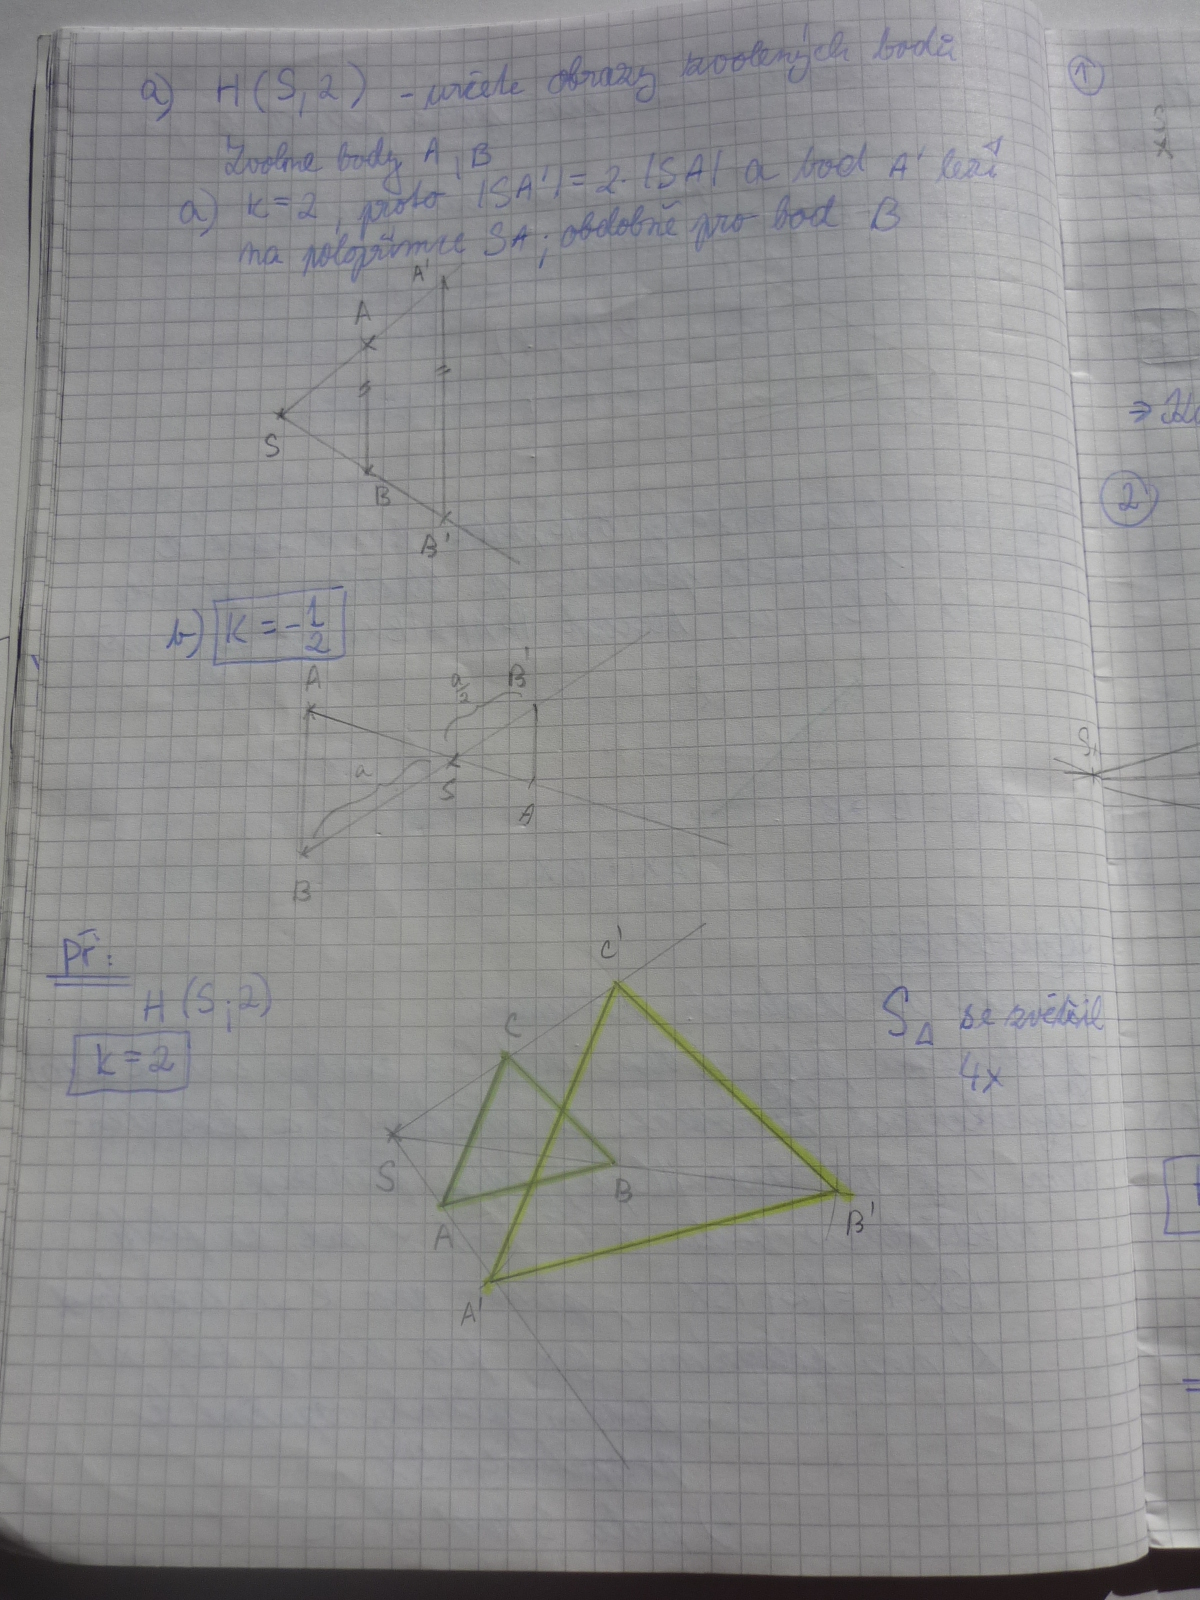 a) H(S,2) - určete obrazy zvolených bodů
Zvolme body A, B
a) k=2, proto |SA'|=2·|SA| a bod A' leží
na polopřímce SA; obdobně pro bod B
A'
A
S
B
B'
b) K=-1/2
A
a/2
B'
a
S
A
B
Př:
H(S;2)
k=2
C'
C
S
A
B
A'
B'
S△ se zvětšil
4x
1
S
⇒
2
S1
=